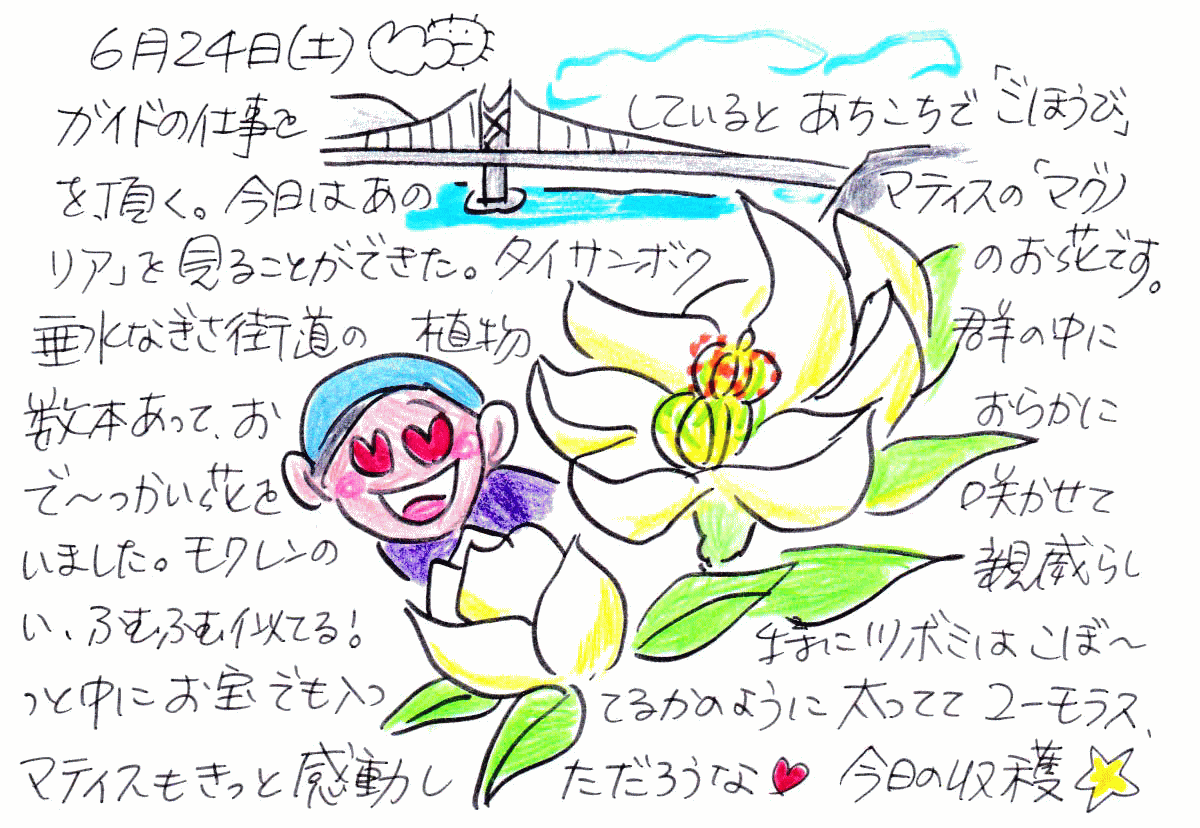 6月24日(土)
ガイドの仕事をしていると あちこちで「ごほうび」
を頂く。今日はあのマティスの「マグノ
リア」を見ることができた。タイサンボクのお花です。
垂水なぎさ街道の 植物群の中に
数本あって、おおらかに
で〜っかい花を咲かせて
いました。モクレンの親戚らし
い、ふむふむ似てる!特にツボミはこぼ〜
っと中にお宝でも入ってるかのように太ってて ユーモラス、
マティスもきっと感動しただろうな 今日の収穫